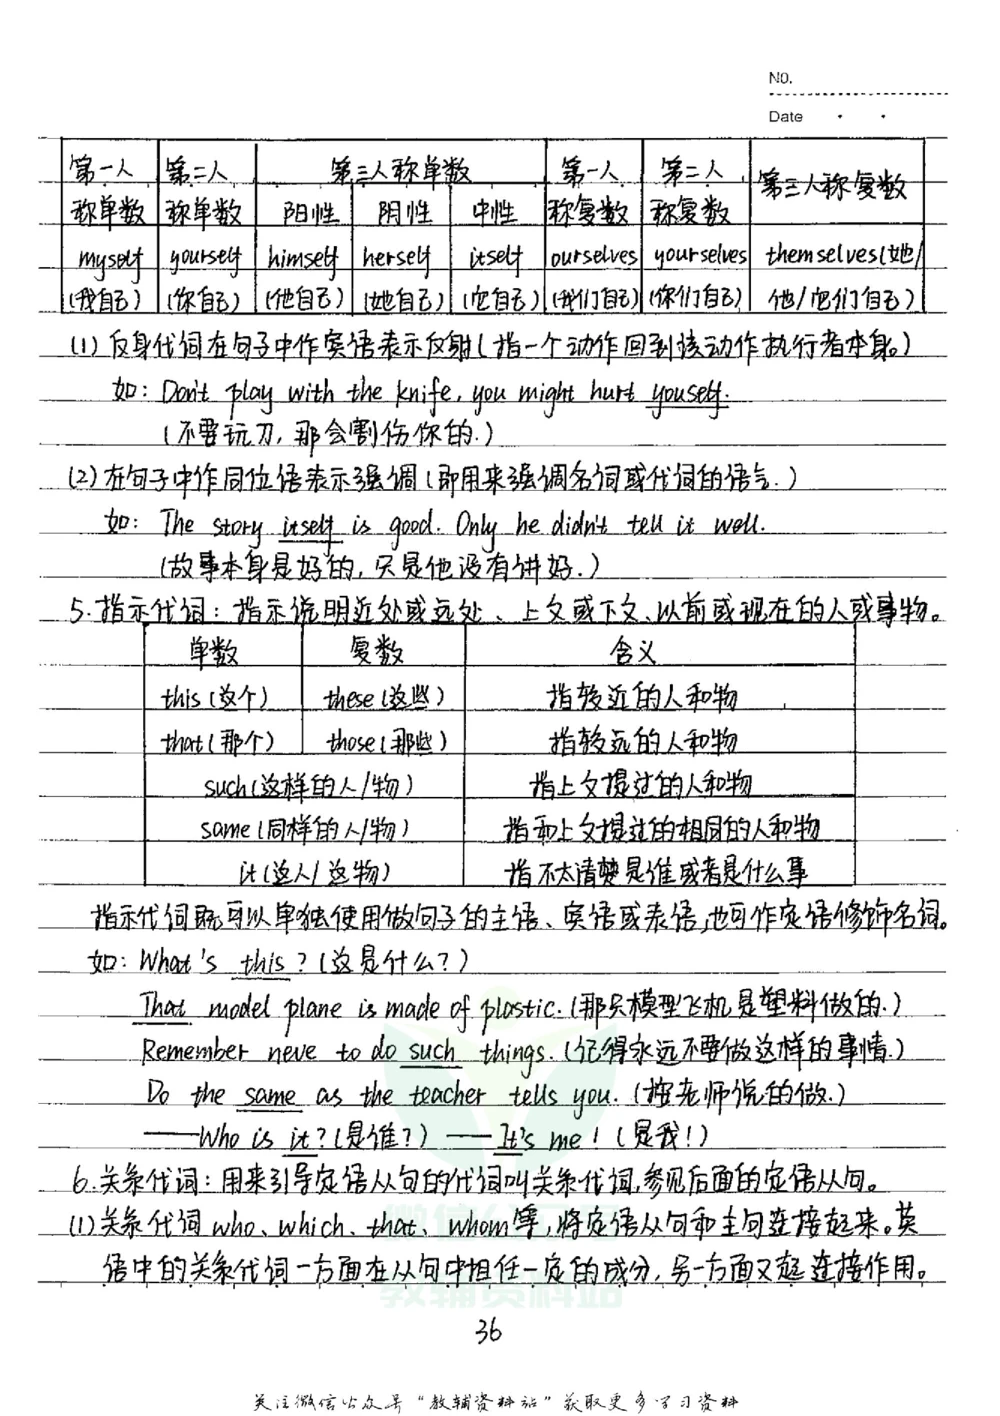 No.
Date
第一人 第二人 第三人称单数 第一人 第二人 第三人称复数
称单数 称单数 阳性 阴性 中性 称复数 称复数
myself yourself himself herself itself ourselves yourselves themselves(她/
(我自己) (你自己) (他自己) (她自己) (它自己) (我们自己) (你们自己) 他/它们自己)
(1)反身代词在句子中作宾语表示反射(指一个动作回到该动作执行者本身。)
如: Don't play with the knife, you might hurt youself.
(不要玩刀,那会割伤你的.)
(2)在句子中作同位语表示强调(即用来强调名词或代词的语气.)
如: The story itself is good. Only he didn't tell it well.
(故事本身是好的,只是他没有讲好.)
5.指示代词:指示说明近处或远处、上文或下文、以前或现在的人或事物。
单数 复数 含义
this(这个) these(这些) 指较近的人和物
that(那个) those(那些) 指较远的人和物
such(这样的人/物) 指上文提过的人和物
same(同样的人/物) 指和上文提过的相同的人和物
it(这人/这物) 指不太清楚是谁或者是什么事
指示代词既可以单独使用做句子的主语、宾语或表语,也可作定语修饰名词。
如: What's this?(这是什么?)
That model plane is made of plastic.(那只模型飞机是塑料做的.)
Remember neve to do such things.(记得永远不要做这样的事情.)
Do the same as the teacher tells you.(按老师说的做.)
——Who is it?(是谁?) ——It's me!(是我!)
6.关系代词:用来引导定语从句的代词叫关系代词,参见后面的定语从句。
(1)关系代词who、which、that、whom等,将定语从句和主句连接起来。英
语中的关系代词一方面在从句中担任一定的成分,另一方面又起连接作用。
教辅资料站
36
关注微信公众号“教辅资料站”获取更多学习资料